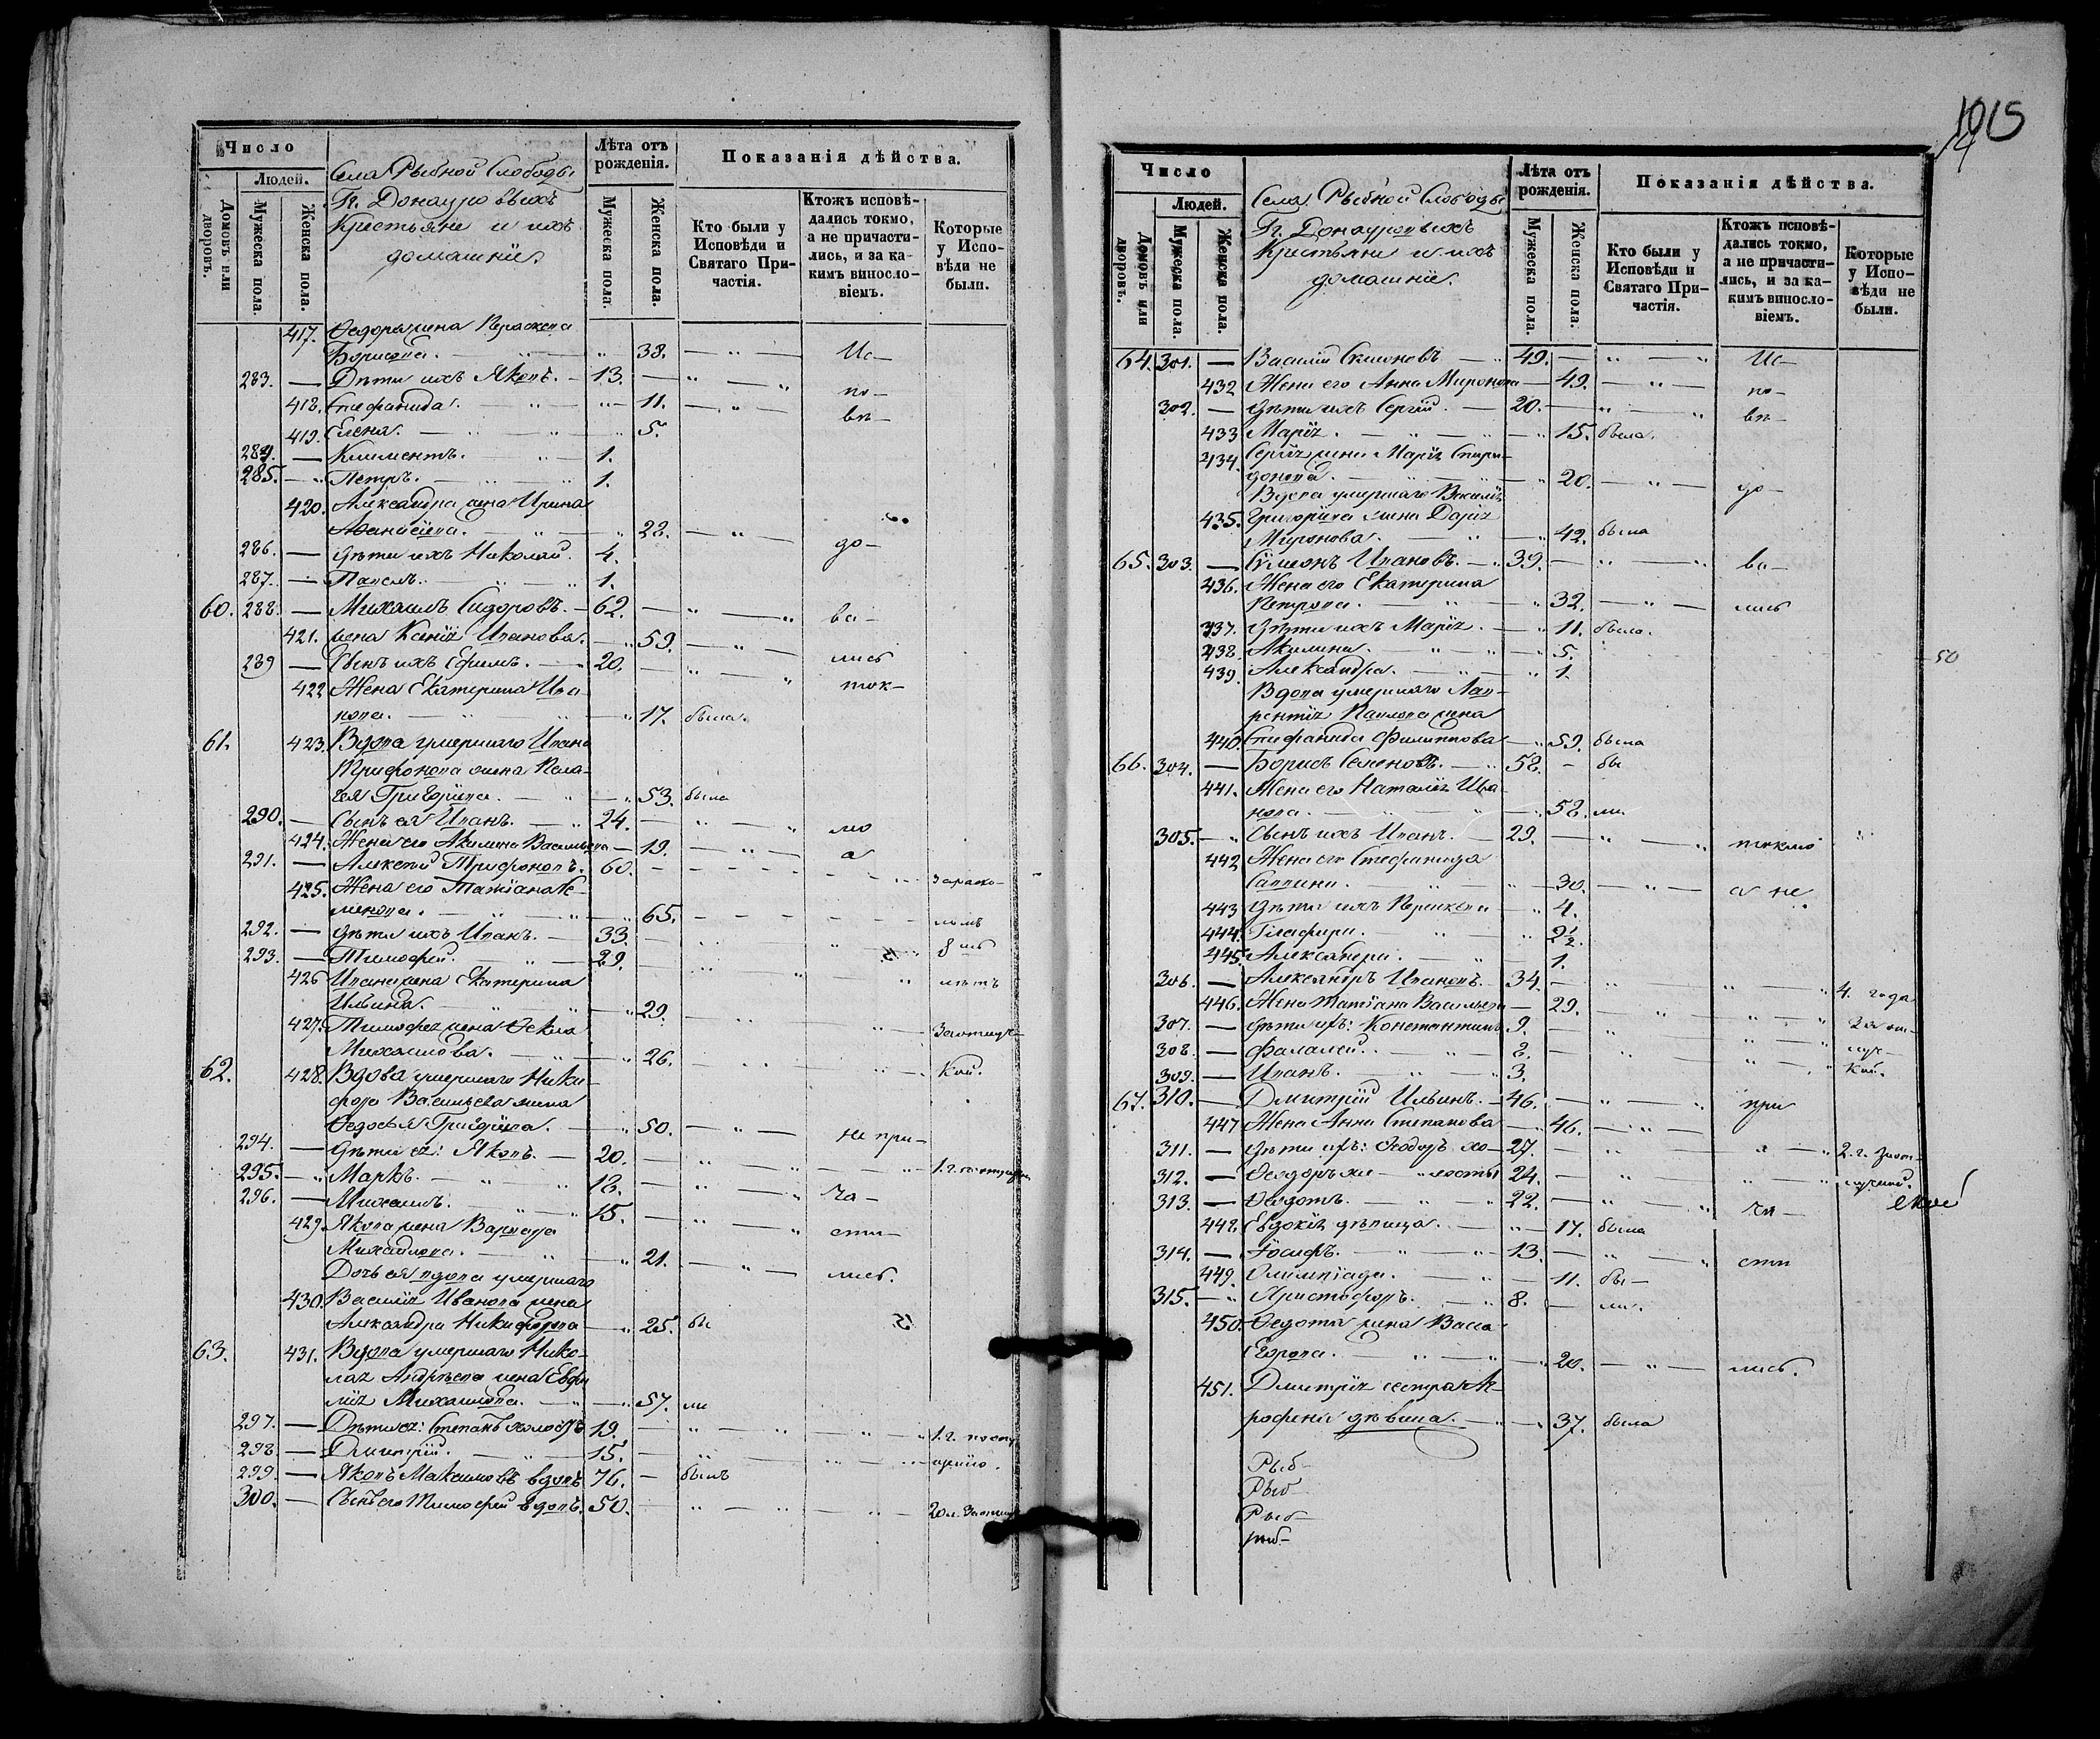 Число
Людей.
Домовъ или дворовъ.
Мужеска пола.
Женска пола.
Села Рыбной Слободы
Гг. Донауровыхъ
Крестьяне и ихъ
домашніе.
Лѣта отъ рожденія.
Мужеска пола.
Женска пола.
Показанія дѣйства.
Кто были у Исповѣди и Святаго Причастія.
Ктожъ исповѣдались токмо, а не причастились, и за какимъ винословіемъ.
Которые у Исповѣди не были.
417. Ѳедора жена Параскева
Борисова. 38. Ис-
283. Дѣти ихъ Яковъ. 13. по-
418. Стефанида. 11. вѣ-
419. Елена. 5.
284. Климентъ. 1.
285. Петръ. 1.
420. Александра жена Ирина
Аѳанасіева. 22. до-
286. дѣти ихъ Николай. 4.
287. Павелъ. 1.
60. 288. Михаилъ Сидоровъ. 62. ва-
421. жена Ксенія Иванова. 59. лись
289 Сынъ ихъ Ефимъ. 20. ток-
422 Жена Екатерина Ива-
нова. 17. была.
61. 423. Вдова умершаго Ивана
Трифонова жена Пела-
гея Григорьева. 53. была
290. Сынъ ея Иванъ. 24. мо
424. Жена его Акилина Васильева 19. а
291. Алексѣй Трифоновъ. 60.
425. Жена его Татіана
65.
292. дѣти ихъ Иванъ. 33.
293. Тимофей. 29. лѣтъ
426 Ивана жена Екатерина
Ильина. 29.
427. Тимофея жена Ѳекла
Михаилова. 26. кой.
62. 428. Вдова умершаго Ники-
фора Васильева жена
Ѳедосья Григорьева. 50. не при-
294. дѣти ея: Яковъ. 20.
295. Маркъ. 18. ча-
296. Михаилъ. 15.
429. Якова жена Варвара сти-
Михайлова. 21. лись.
Дочь ея вдова умершаго
430. Василія Иванова жена
Александра Никифорова 25. бы
63. 431. Вдова умершаго Нико-
лая Андреева жена Евфи
мія Михаилова. 57. ли
297. Дѣти ея: Степанъ холостъ 19.
298 Дмитрій. 15.
299. Яковъ Максимовъ вдовъ 76. былъ
300. Сынъ его Тимофей вдовъ. 50.
1015
14
Число
Людей.
Домовъ или дворовъ.
Мужеска пола
Женска пола.
Села Рыбной Слободы
Гг. Донауровыхъ
Крестьяне и ихъ
домашніе.
Лѣта отъ рожденія.
Мужеска пола.
Женска пола.
Показанія дѣйства.
Кто были у Исповѣди и Святаго Причастія.
Ктожъ исповѣдались токмо, а не причастились, и за какимъ винословіемъ.
Которые у Исповѣди не были.
64. 301. Василій Симоновъ 49. Ис-
432 Жена его Анна Миронова 49. по-
302. дѣти ихъ Сергій. 20. вѣ-
433 Марія. 15. была.
434. Сергія жена Марія Спири-
донова. 20. до-
Вдова умершаго Василія
435. Григорьева жена Дарія
Миронова. 42. была
65. 303. Симеонъ Ивановъ. 39. ва-
436. Жена его Екатерина
Петрова. 32. лись
437. Дѣти ихъ Марія. 11. была.
438. Акилина. 5.
439. Александра. 1.
50
Вдова умершаго Лав-
рентія Павлова жена
440. Стефанида Филиппова 59. была
66. 304. Борисъ Семеновъ. 58. бы
441. Жена его Наталія Ива-
нова. 58. ли
305. Сынъ ихъ Иванъ. 29. токмо
442 Жена его Стефанида
Саввина. 30. а не
443 дѣти ихъ Параскева 4.
444. Глафира. 2 1/2.
445. Александра. 1.
306. Александръ Ивановъ. 34. 4. года
446. Жена Татіана Васильева 29.
307. дѣти ихъ: Константинъ 9.
308. Фалалей. 8.
309. Иванъ. 3. кой.
67. 310. Дмитрій Ильинъ. 46. при
447 Жена Анна Степанова 46.
311. дѣти ихъ: Ѳеодоръ хо- 27.
312. Ѳеодоръ хо- лосты 24.
313. Ѳедотъ. 22. ча-
448. Евдокія дѣвица. 17. была
314. Іосифъ. 13. сти
449. Олимпіада. 11. бы-
315. Христофоръ. 8. ли.
450. Ѳедота жена Васса
Егорова. 20. лись.
451. Дмитрія сестра Аг-
рофенія дѣвица. 37. была
Рыб-
Рыб
Рыб-
рыб-